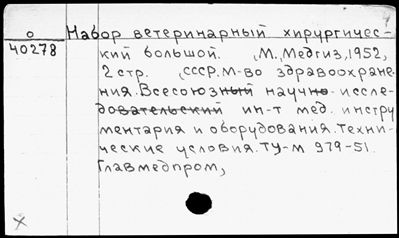 о Набор ветеринарный хирургичес-
40278 кий большой. М., Медгиз, 1952,
2 стр. (СССР. М-во здравоохране-
ния. Всесоюзный научно-иссле-
довательский ин-т мед. инстру
ментария и оборудования. Техни-
ческие условия. ТУ-М 979-51.
Главмедпром,